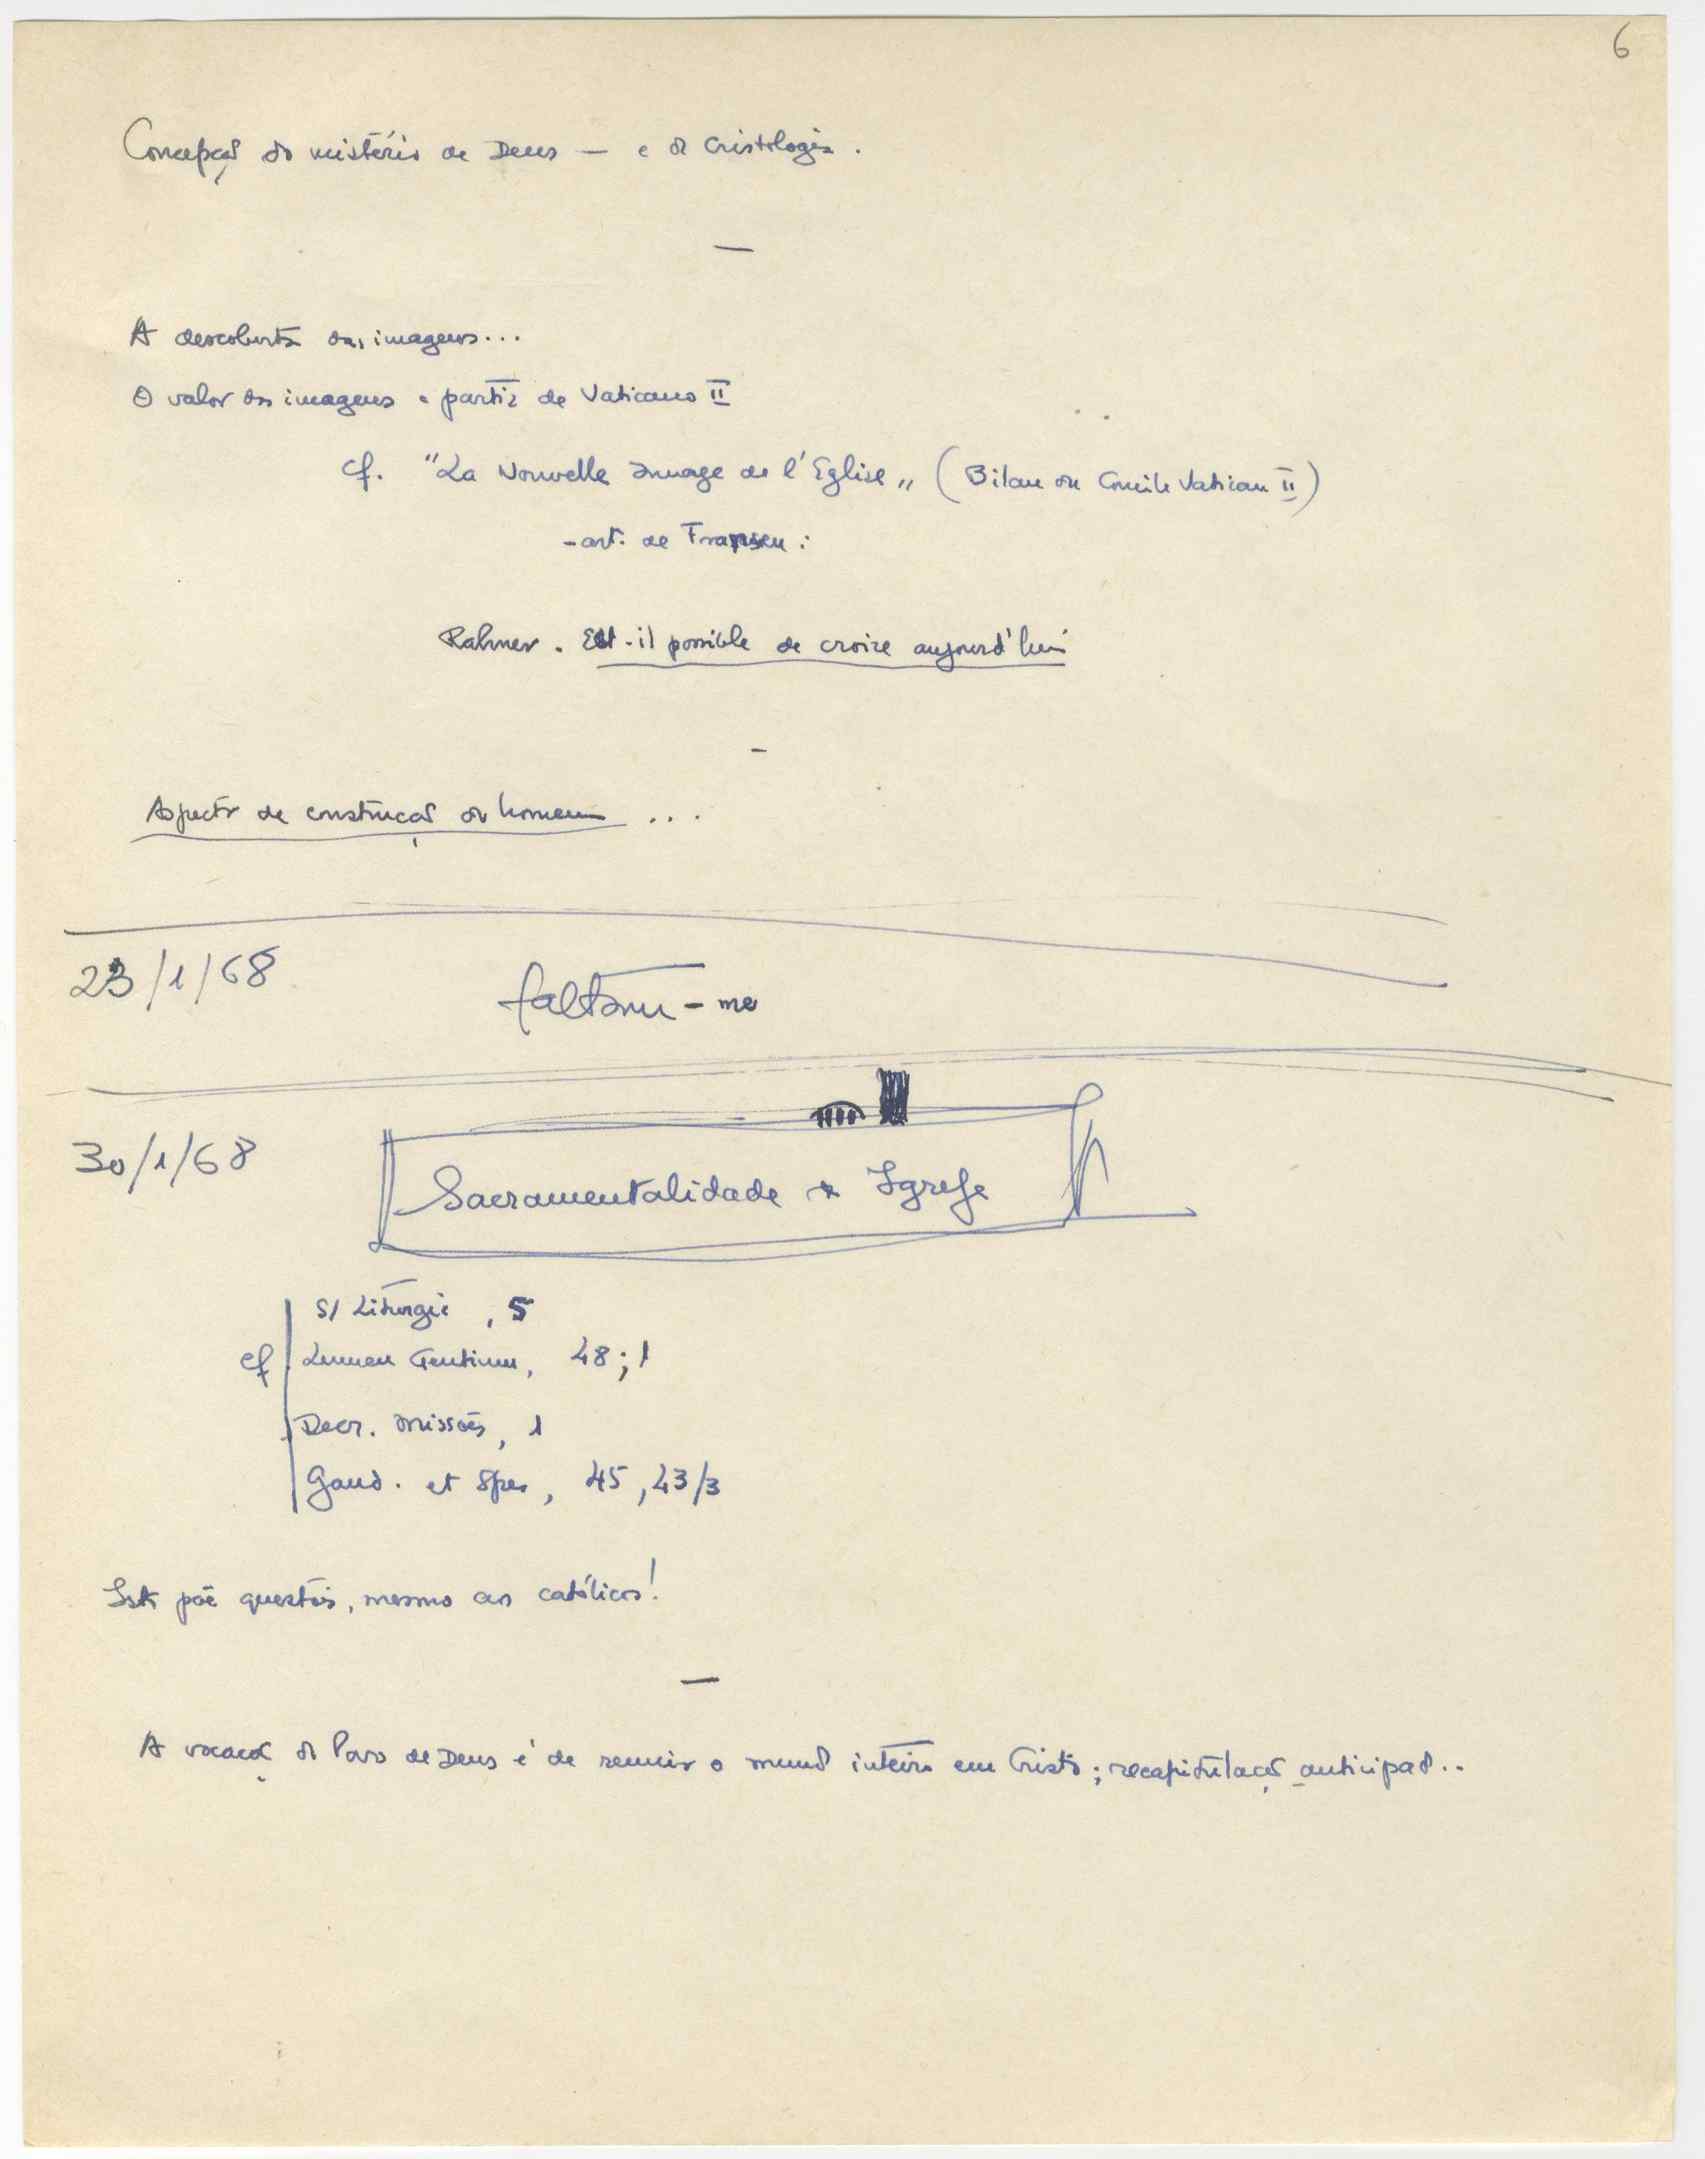 6
Concepção do mistério de Deus — e da Cristologia.
—
A descoberta das imagens...
O valor das imagens a partir de Vaticano II
Cf. "La Nouvelle Image de l'Eglise" (Bilan du Concile Vatican II)
- art. de Fransen :
Rahner. Est-il possible de croire aujourd'hui
-
Aspecto de construção do homem ...
23/1/68 faltam-me
30/1/68 Sacramentalidade da Igreja
S/ Liturgia, 5
cf Lumen Gentium, 48; 1
Decr. Missões, 1
Gaud. et Spes, 45, 43/3
Isto põe questões, mesmo aos católicos!
—
A vocação do Povo de Deus é de reunir o mundo inteiro em Cristo; recapitulação antecipad..